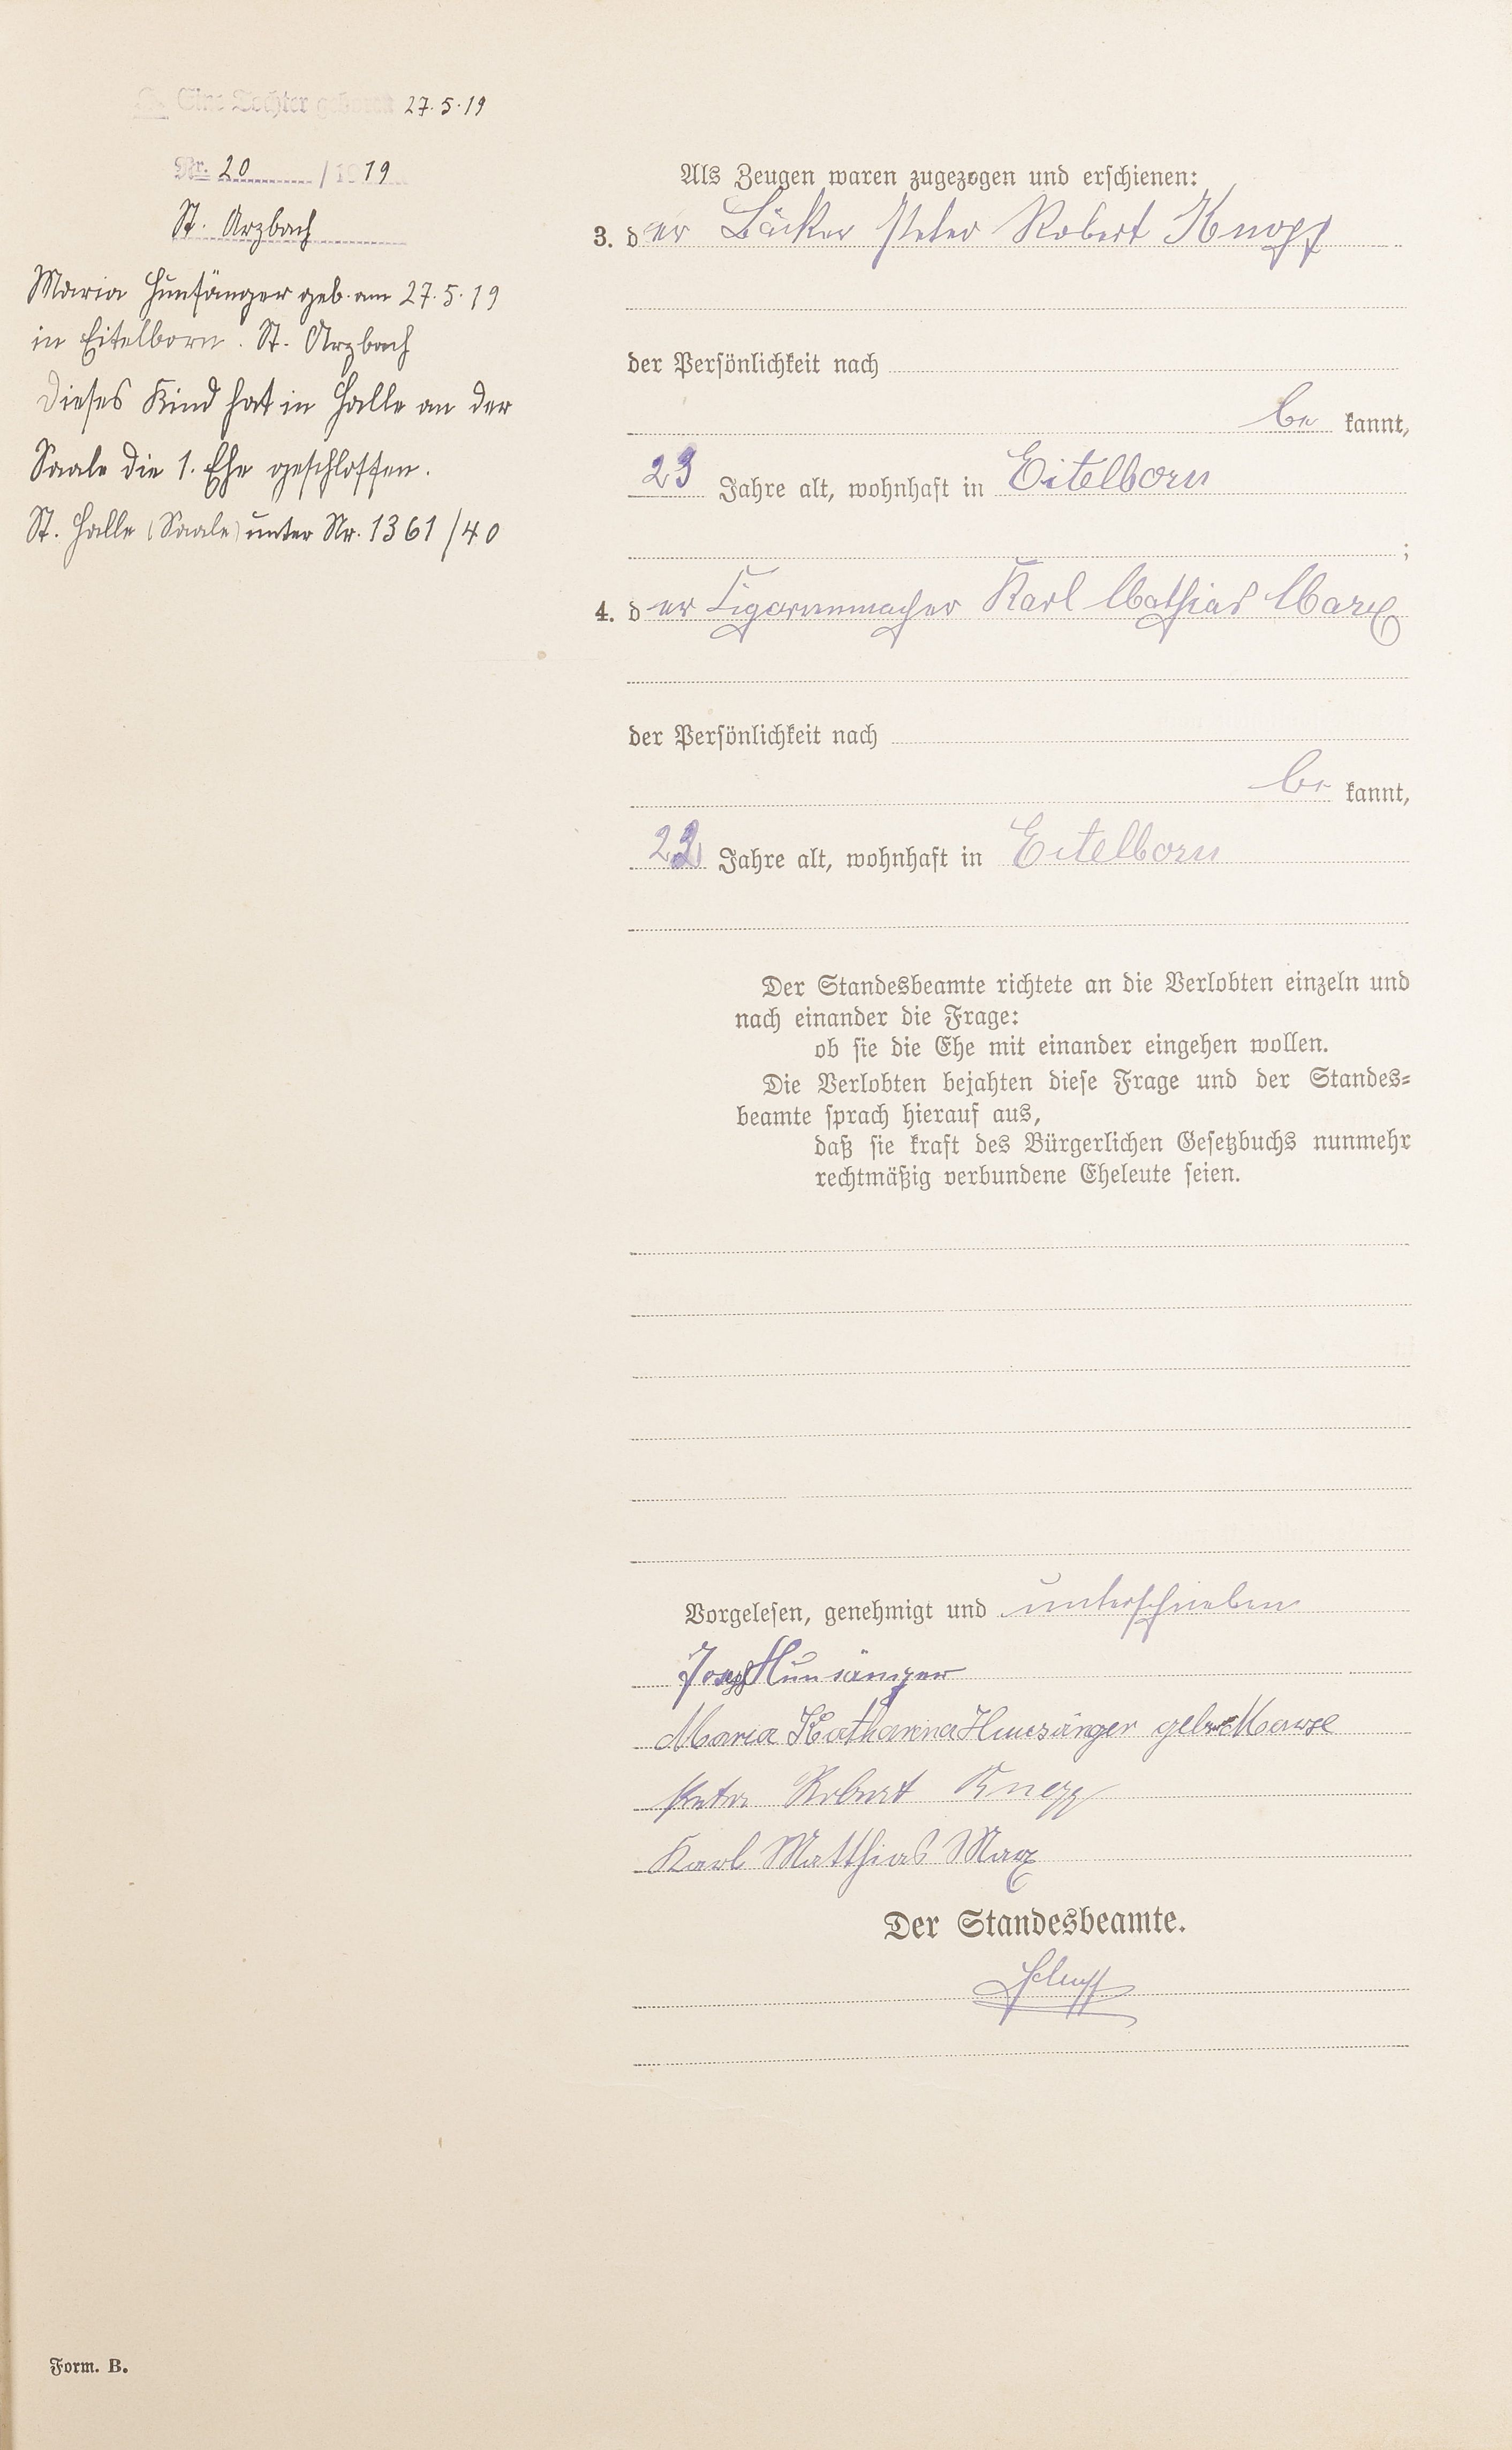 Eine Tochter geboren 27.5.19
Nr. 20 / 1919
St. Arzbach
Maria Hunsänger geb. am 27.5.19
in Eitelborn. St. Arzbach
Dieses Kind hat in Halle an der
Saale die 1. Ehe geschlossen.
St. Halle (Saale) unter Nr. 1361/40
Als Zeugen waren zugezogen und erschienen:
3. der Bäcker Peter Robert Knopp
der Persönlichkeit nach
be kannt,
23 Jahre alt, wohnhaft in Eitelborn
;
4. der Cigarrenmacher Karl Mathias Marx
der Persönlichkeit nach
be kannt,
Jahre alt, wohnhaft in Eitelborn
Der Standesbeamte richtete an die Verlobten einzeln und
nach einander die Frage:
ob sie die Ehe mit einander eingehen wollen.
Die Verlobten bejahten diese Frage und der Standes=
beamte sprach hierauf aus,
daß sie kraft des Bürgerlichen Gesetzbuchs nunmehr
rechtmäßig verbundene Eheleute seien.
Vorgelesen, genehmigt und unterschrieben
Josef Hunsänger
Maria Katharina Hunsänger geb.
Peter Robert Knopp
Karl Matthias Marx
Der Standesbeamte.
Form. B.